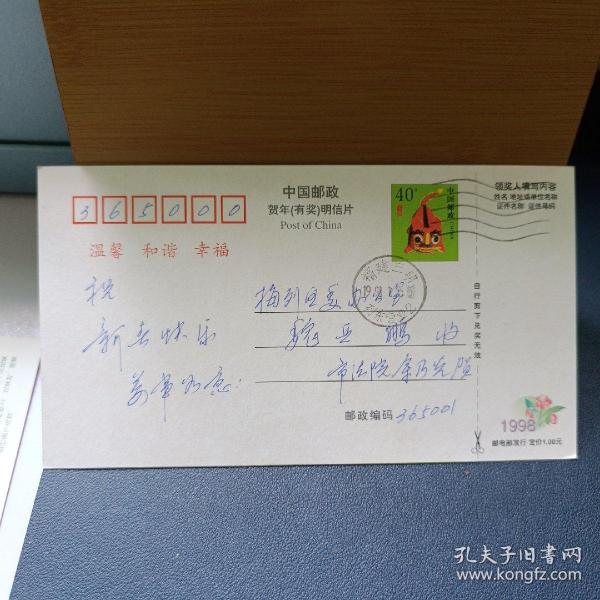 365000
中国邮政
贺年(有奖)明信片
Post of China
40分
中国邮政
领奖人填写内容
姓名 地址或单位名称
证件名称 证件号码
温馨 和谐 幸福
祝
新春快乐
万事如意:
梅列区委办公室
魏亚鹏 收
市法院
福建三明
自行剪下兑奖无效
邮政编码 365001
1998
邮电部发行 定价1.00元
孔夫子旧书网
www.kongfz.com